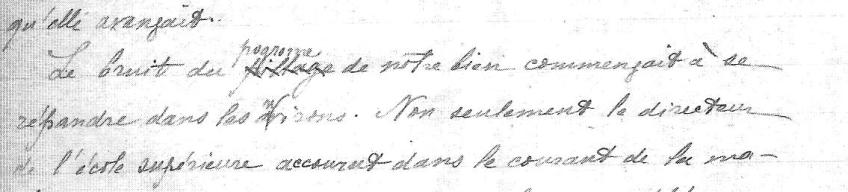 qu'elle avançait.
pogrome
Le bruit du pillage de notre bien commençait à se
répandre dans les environs. Non seulement le directeur
de l'école supérieure accourut dans le courant de la ma-